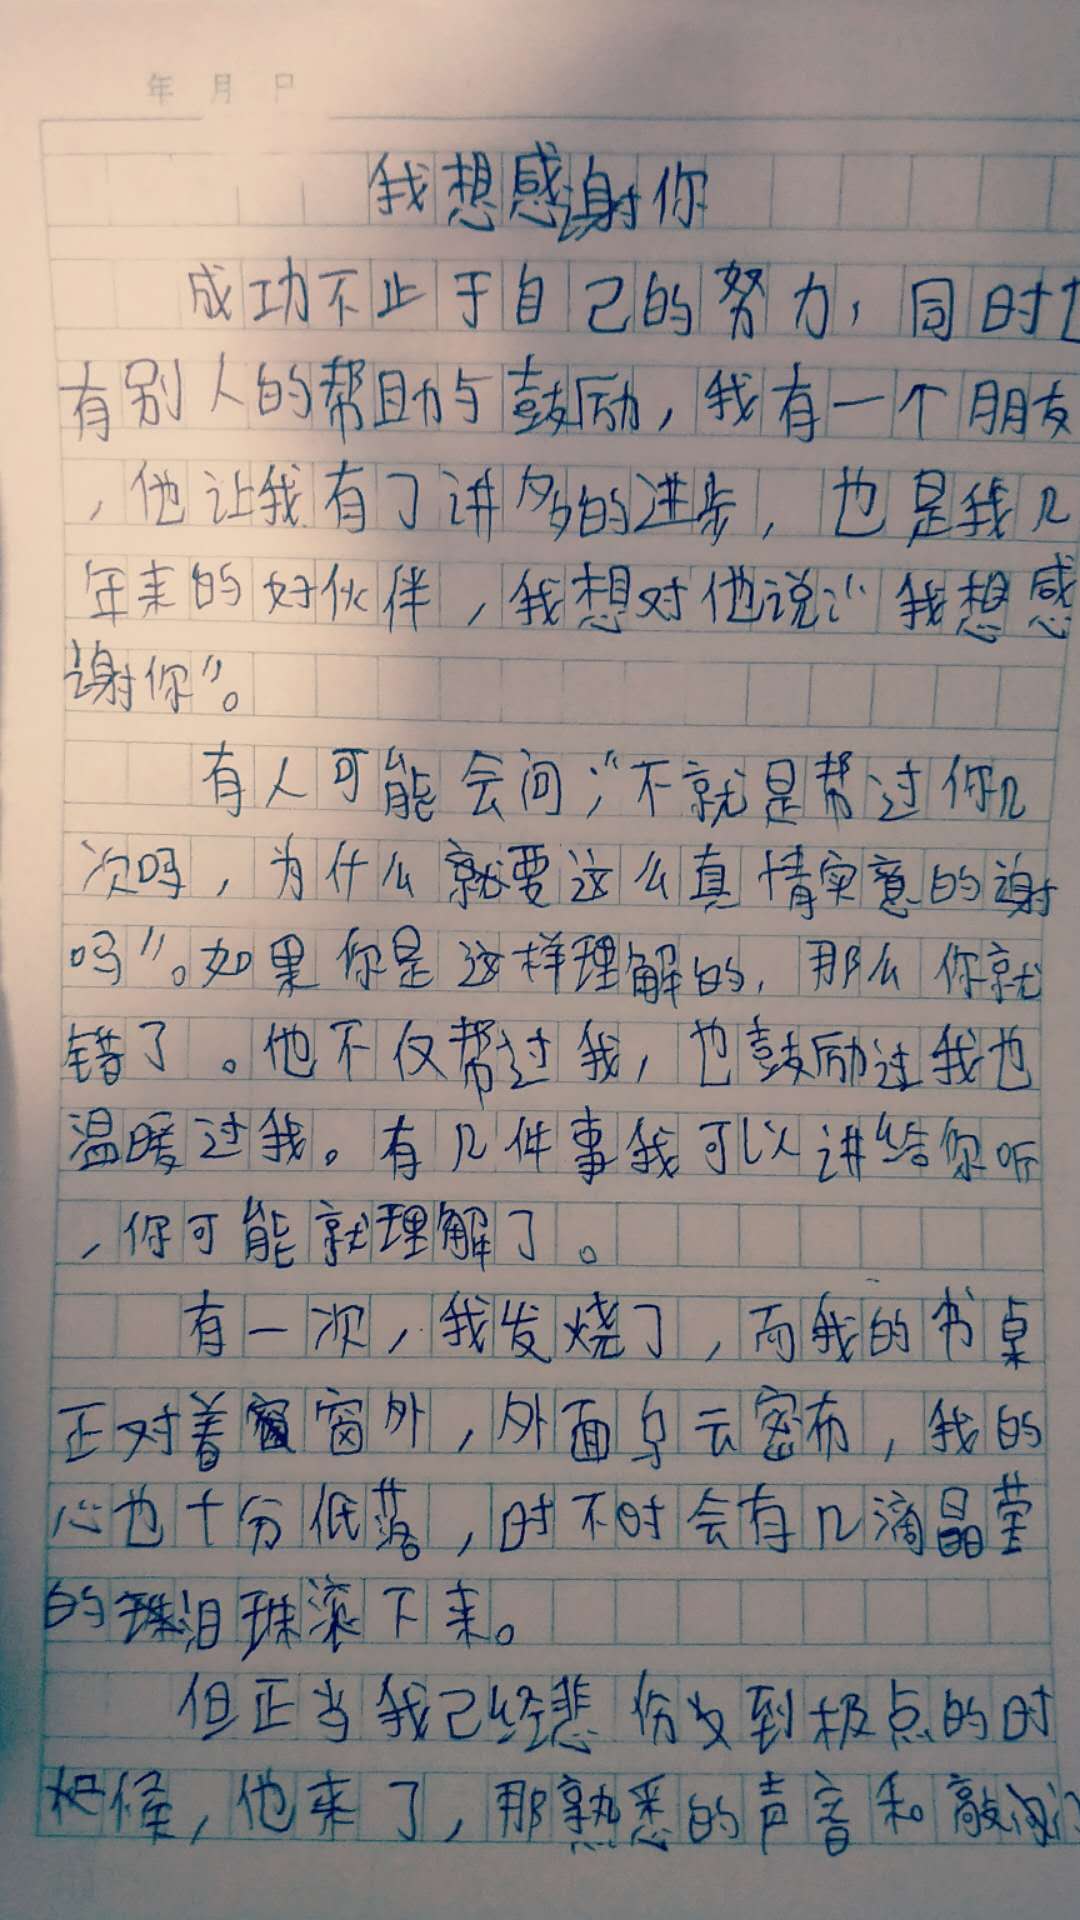 年 月 日
我想感谢你
成功不止于自己的努力，同时也
有别人的帮助与鼓励，我有一个朋友
，他让我有了讲多的进步，也是我几
年来的好伙伴，我想对他说：“我想感
谢你”。
有人可能会问；“不就是帮过你几
次吗，为什么就要这么真情实意的谢
吗”。如果你是这样理解的，那么你就
错了。他不仅帮过我，也鼓励过我也
温暖过我。有几件事我可以讲给你听
，你可能就理解了。
有一次，我发烧了，而我的书桌
正对着窗外，外面乌云密布，我的
心也十分低落，时不时会有几滴晶莹
的泪珠滚下来。
但正当我已经悲伤到极点的时
候，他来了，那熟悉的声音和敲门